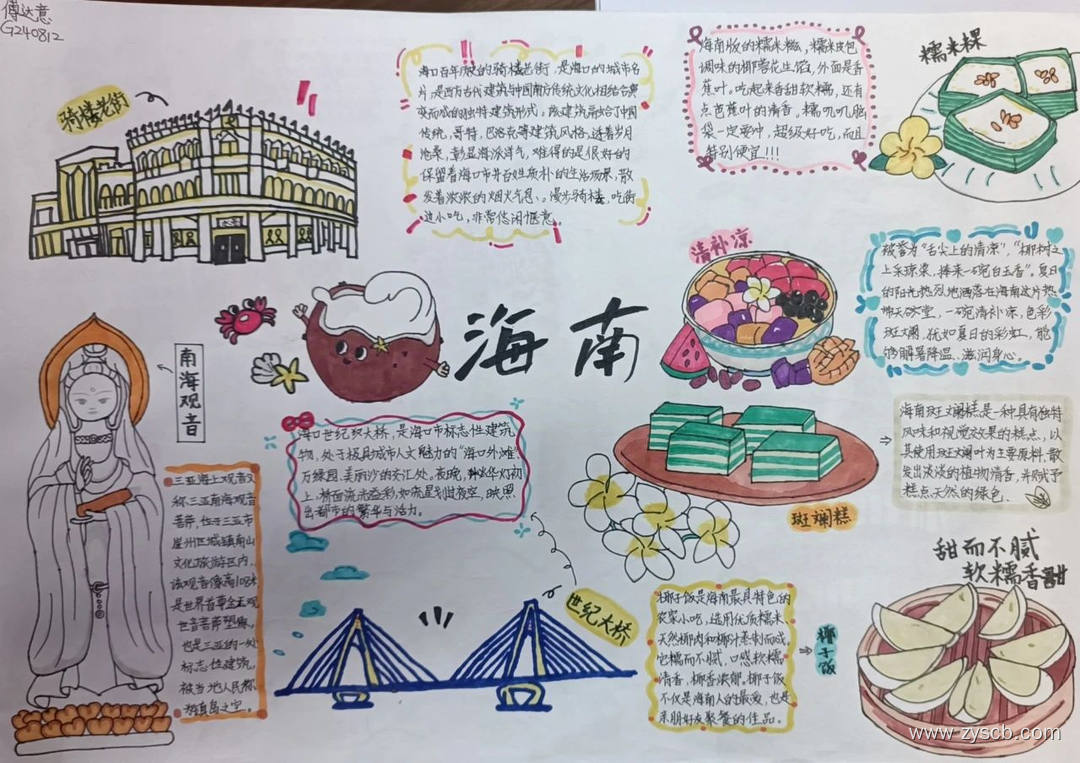 傅达意
G240812
骑楼老街
海口百年历史的骑楼老街，是海口的城市名
片，是西方古代建筑与中国南方传统文化相结合演
变而成的独特建筑形式，该建筑融合了中国
传统，哥特，巴洛克等建筑风格，透着岁月
沧桑，彰显海派洋气，难得的是很好的
保留着海口市井百姓质朴的生活场景，散
发着浓浓的烟火气息。漫步骑楼，吃街
边小吃，非常悠闲惬意。
海南版的糯米粽，糯米皮包
调味的椰蓉花生馅，外面是香
蕉叶。吃起来香甜软糯，还有
点芭蕉叶的清香。糯叽叽脑
袋一定要冲，超级好吃，而且
特别便宜!!!
糯米粿
清补凉
被誉为“舌尖上的清凉”，“椰树之
上采琼浆，捧来一碗白玉香”。夏日
的阳光热烈地洒落在海南这片热
带天堂，一碗清补凉，色彩
斑斓，犹如夏日的彩虹，能
够解暑降温、滋润身心。
海南
南海观音
三亚海上观音又
称三亚南海观音
菩萨，位于三亚市
崖州区城镇南山
文化旅游区内，
该观音像高108米
是世界首尊金玉观
世音菩萨塑像。
也是三亚的一处
标志性建筑，
被当地人民称
为镇岛之宝。
海口世纪大桥，是海口市标志性建筑
物，处于极具城市人文魅力的“海口外滩”
万绿园、美丽沙的交汇处。夜晚，华灯初
上，桥面流光溢彩，如流星划过夜空，映照
出都市的繁华与活力。
世纪大桥
海南斑斓糕是一种具有独特
风味和视觉效果的糕点，以
其使用斑斓叶为主要原料，散
发出淡淡的植物清香，并赋予
糕点天然的绿色.
斑斓糕
甜而不腻
软糯香甜
椰子饭是海南最具特色的
农家小吃，选用优质糯米
天然椰肉和椰汁蒸制而成，
它糯而不腻，口感软糯
清香，椰香浓郁。椰子饭
不仅是海南人的最爱，也是
亲朋好友聚餐的佳品。
椰子饭
www.zyscb.com